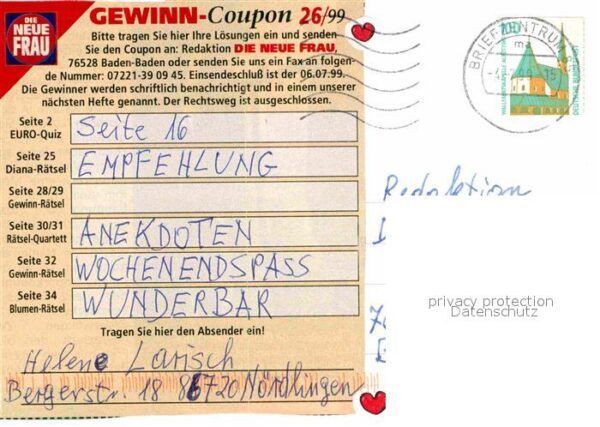 DIE NEUE FRAU
GEWINN-Coupon 26/99
Bitte tragen Sie hier Ihre Lösungen ein und senden
Sie den Coupon an: Redaktion DIE NEUE FRAU,
76528 Baden-Baden oder senden Sie uns ein Fax an folgen-
de Nummer: 07221-39 09 45. Einsendeschluß ist der 06.07.99.
Die Gewinner werden schriftlich benachrichtigt und in einem unserer
nächsten Hefte genannt. Der Rechtsweg ist ausgeschlossen.
Seite 2
EURO-Quiz
Seite 16
Seite 25
Diana-Rätsel
EMPFEHLUNG
Seite 28/29
Gewinn-Rätsel
Seite 30/31
Rätsel-Quartett
ANEKDOTEN
Seite 32
Gewinn-Rätsel
WOCHENENDSPASS
Seite 34
Blumen-Rätsel
WUNDERBAR
Tragen Sie hier den Absender ein!
Helene Larisch
Bergerstr. 18 86720 Nördlingen
BRIEFZENTRUM
100
Redaktion
privacy protection
Datenschutz